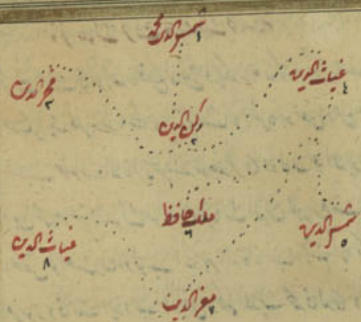 شمس الدین محمد
١
غیاث الدین
٤
فخر الدین
٣
رکن الدین
٢
ملک حافظ
٦
شمس الدین
٥
غیاث الدین
٨
معز الدین